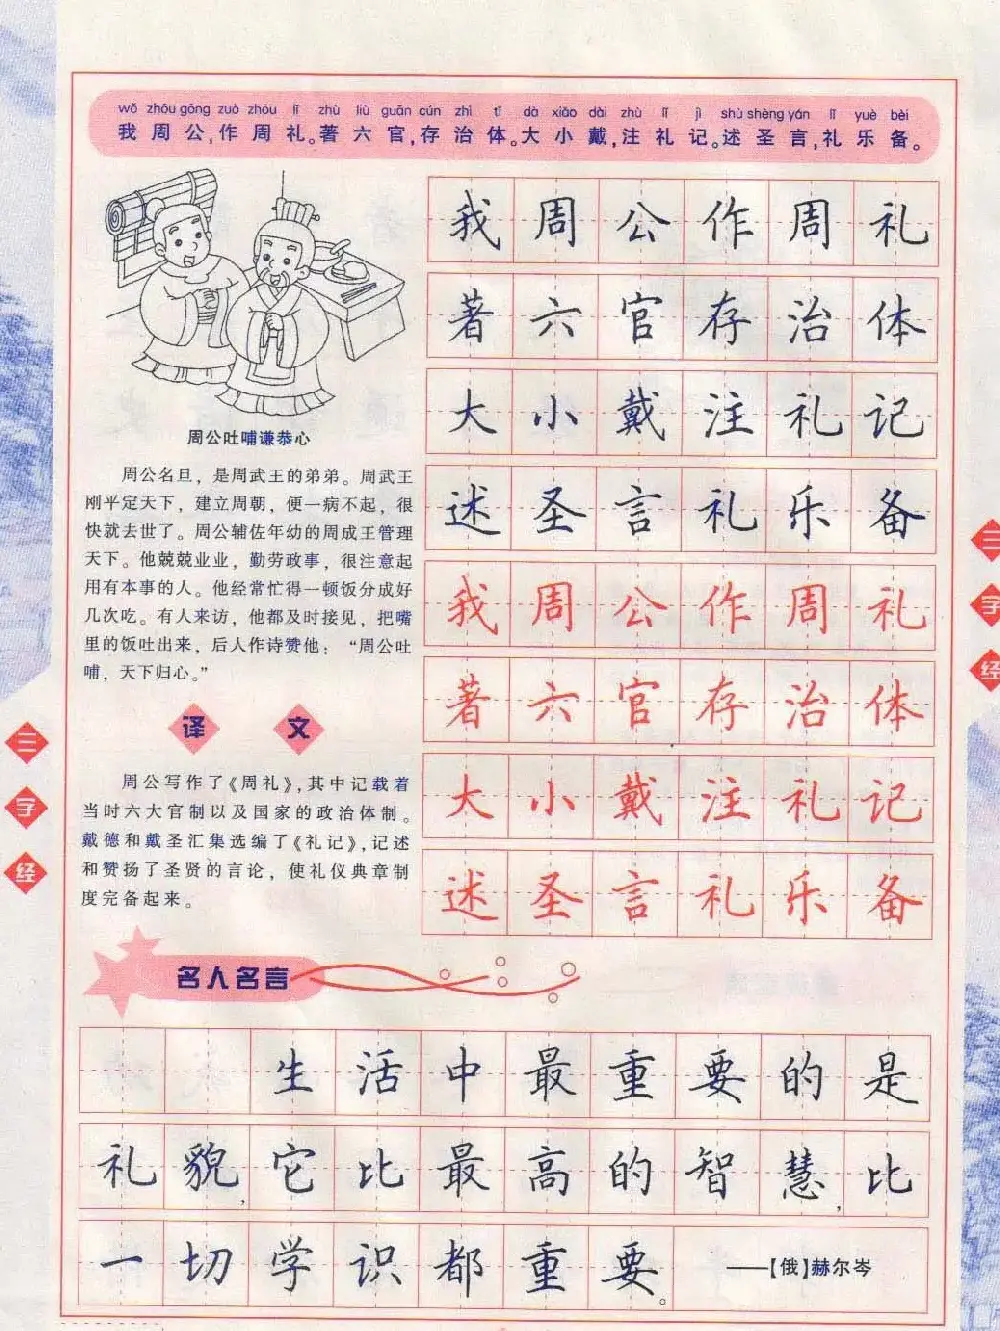 wǒ zhōu gōng zuò zhōu lǐ zhù liù guān cún zhì tǐ dà xiǎo dài zhù lǐ jì shù shèng yán lǐ yuè bèi
我周公,作周礼。著六官,存治体。大小戴,注礼记。述圣言,礼乐备。
周公吐哺谦恭心
周公名旦，是周武王的弟弟。周武王
刚平定天下，建立周朝，便一病不起，很
快就去世了。周公辅佐年幼的周成王管理
天下。他兢兢业业，勤劳政事，很注意起
用有本事的人。他经常忙得一顿饭分成好
几次吃。有人来访，他都及时接见，把嘴
里的饭吐出来，后人作诗赞他：“周公吐
哺，天下归心。”
译文
周公写作了《周礼》,其中记载着
当时六大官制以及国家的政治体制。
戴德和戴圣汇集选编了《礼记》,记述
和赞扬了圣贤的言论，使礼仪典章制
度完备起来。
我周公作周礼
著六官存治体
大小戴注礼记
述圣言礼乐备
我周公作周礼
著六官存治体
大小戴注礼记
述圣言礼乐备
三字经
三字经
名人名言
生活中最重要的是
礼貌,它比最高的智慧,比
一切学识都重要。
——【俄】赫尔岑